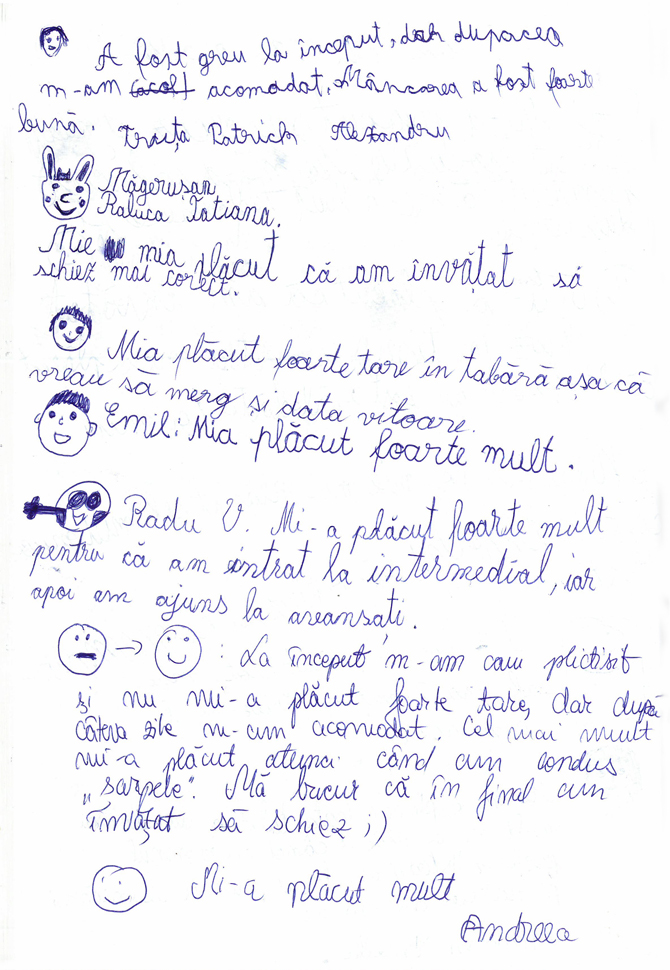 A fost greu la început, dar dupacea
m-am acomodat. Mâncarea a fost foarte
bună. Trașța Patrick Alexandru
Măgerușan
Raluca Tatiana.
Mie mia plăcut că am învățat să
schiez mai corect.
Mia plăcut foarte tare în tabără așa că
vreau să merg și data vitoare.
Emil: Mia plăcut foarte mult.
Radu V. Mi-a plăcut foarte mult
pentru că am intrat la intermedial, iar
apoi am ajuns la areansați.
: La început m-am cam plictisit
și nu mi-a plăcut foarte tare, dar după
câteva zile m-am acomodat. Cel mai mult
mi-a plăcut atunci când am condus
„sarpele". Mă bucur că în final am
învățat să schiez ;)
Mi-a plăcut mult
Andreea